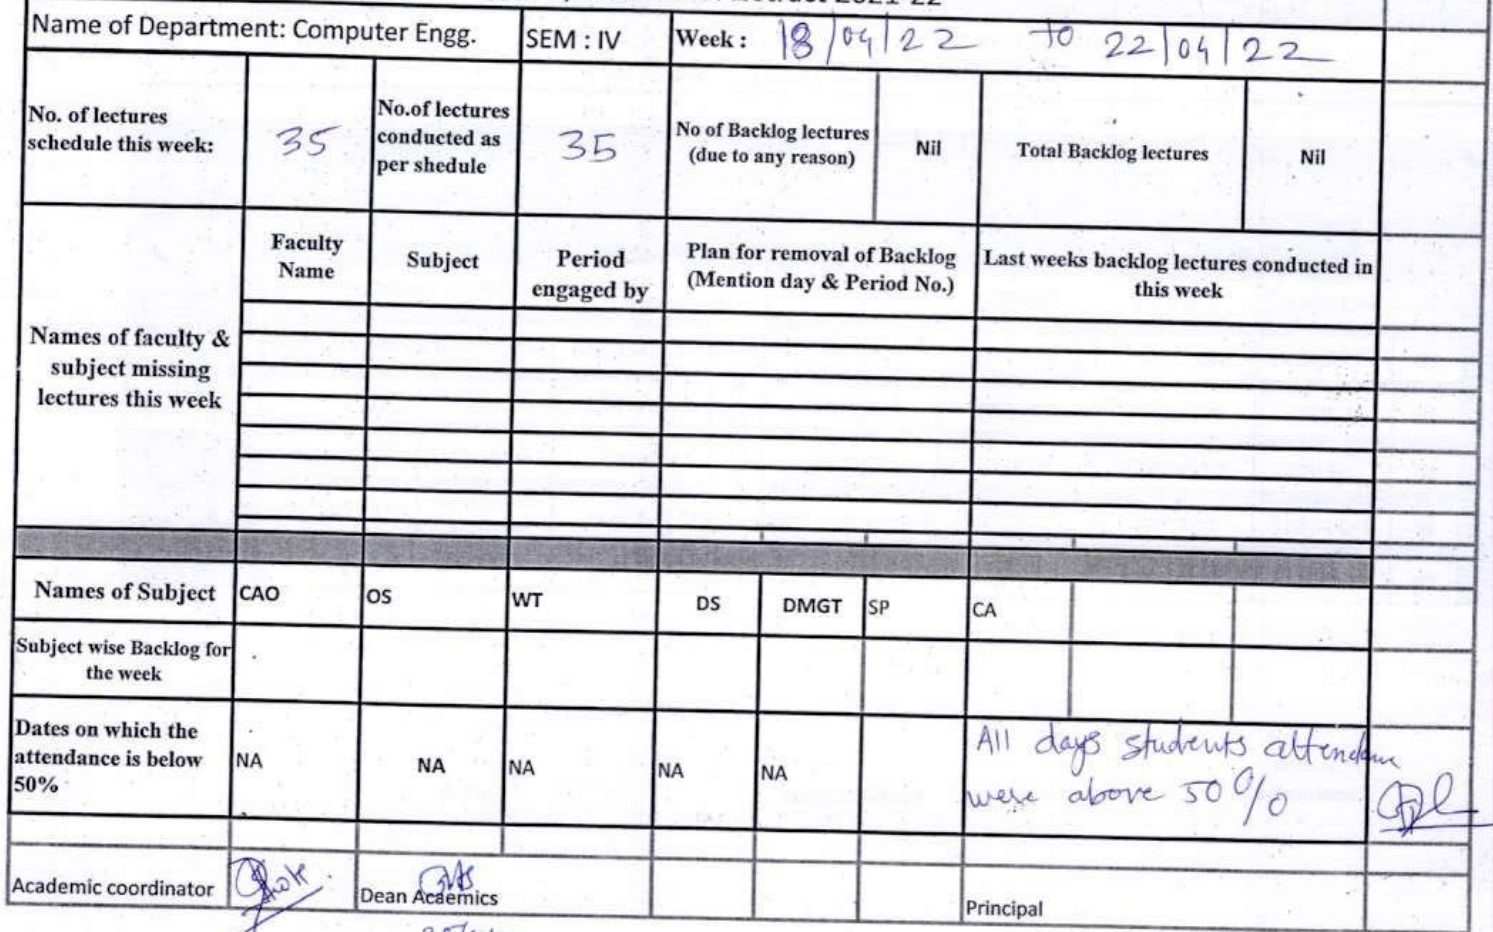 2021-22
Name of Department: Computer Engg. SEM : IV Week : 18/04/22 to 22/04/22
No. of lectures
schedule this week:
35
No.of lectures
conducted as
per shedule
35
No of Backlog lectures
(due to any reason)
Nil
Total Backlog lectures
Nil
Names of faculty &
subject missing
lectures this week
Faculty
Name
Subject
Period
engaged by
Plan for removal of Backlog
(Mention day & Period No.)
Last weeks backlog lectures conducted in
this week
Names of Subject CAO OS WT DS DMGT SP CA
Subject wise Backlog for
the week
Dates on which the
attendance is below
50%
NA NA NA NA NA
All days students
were above 50%
Academic coordinator Dean Acaemics Principal